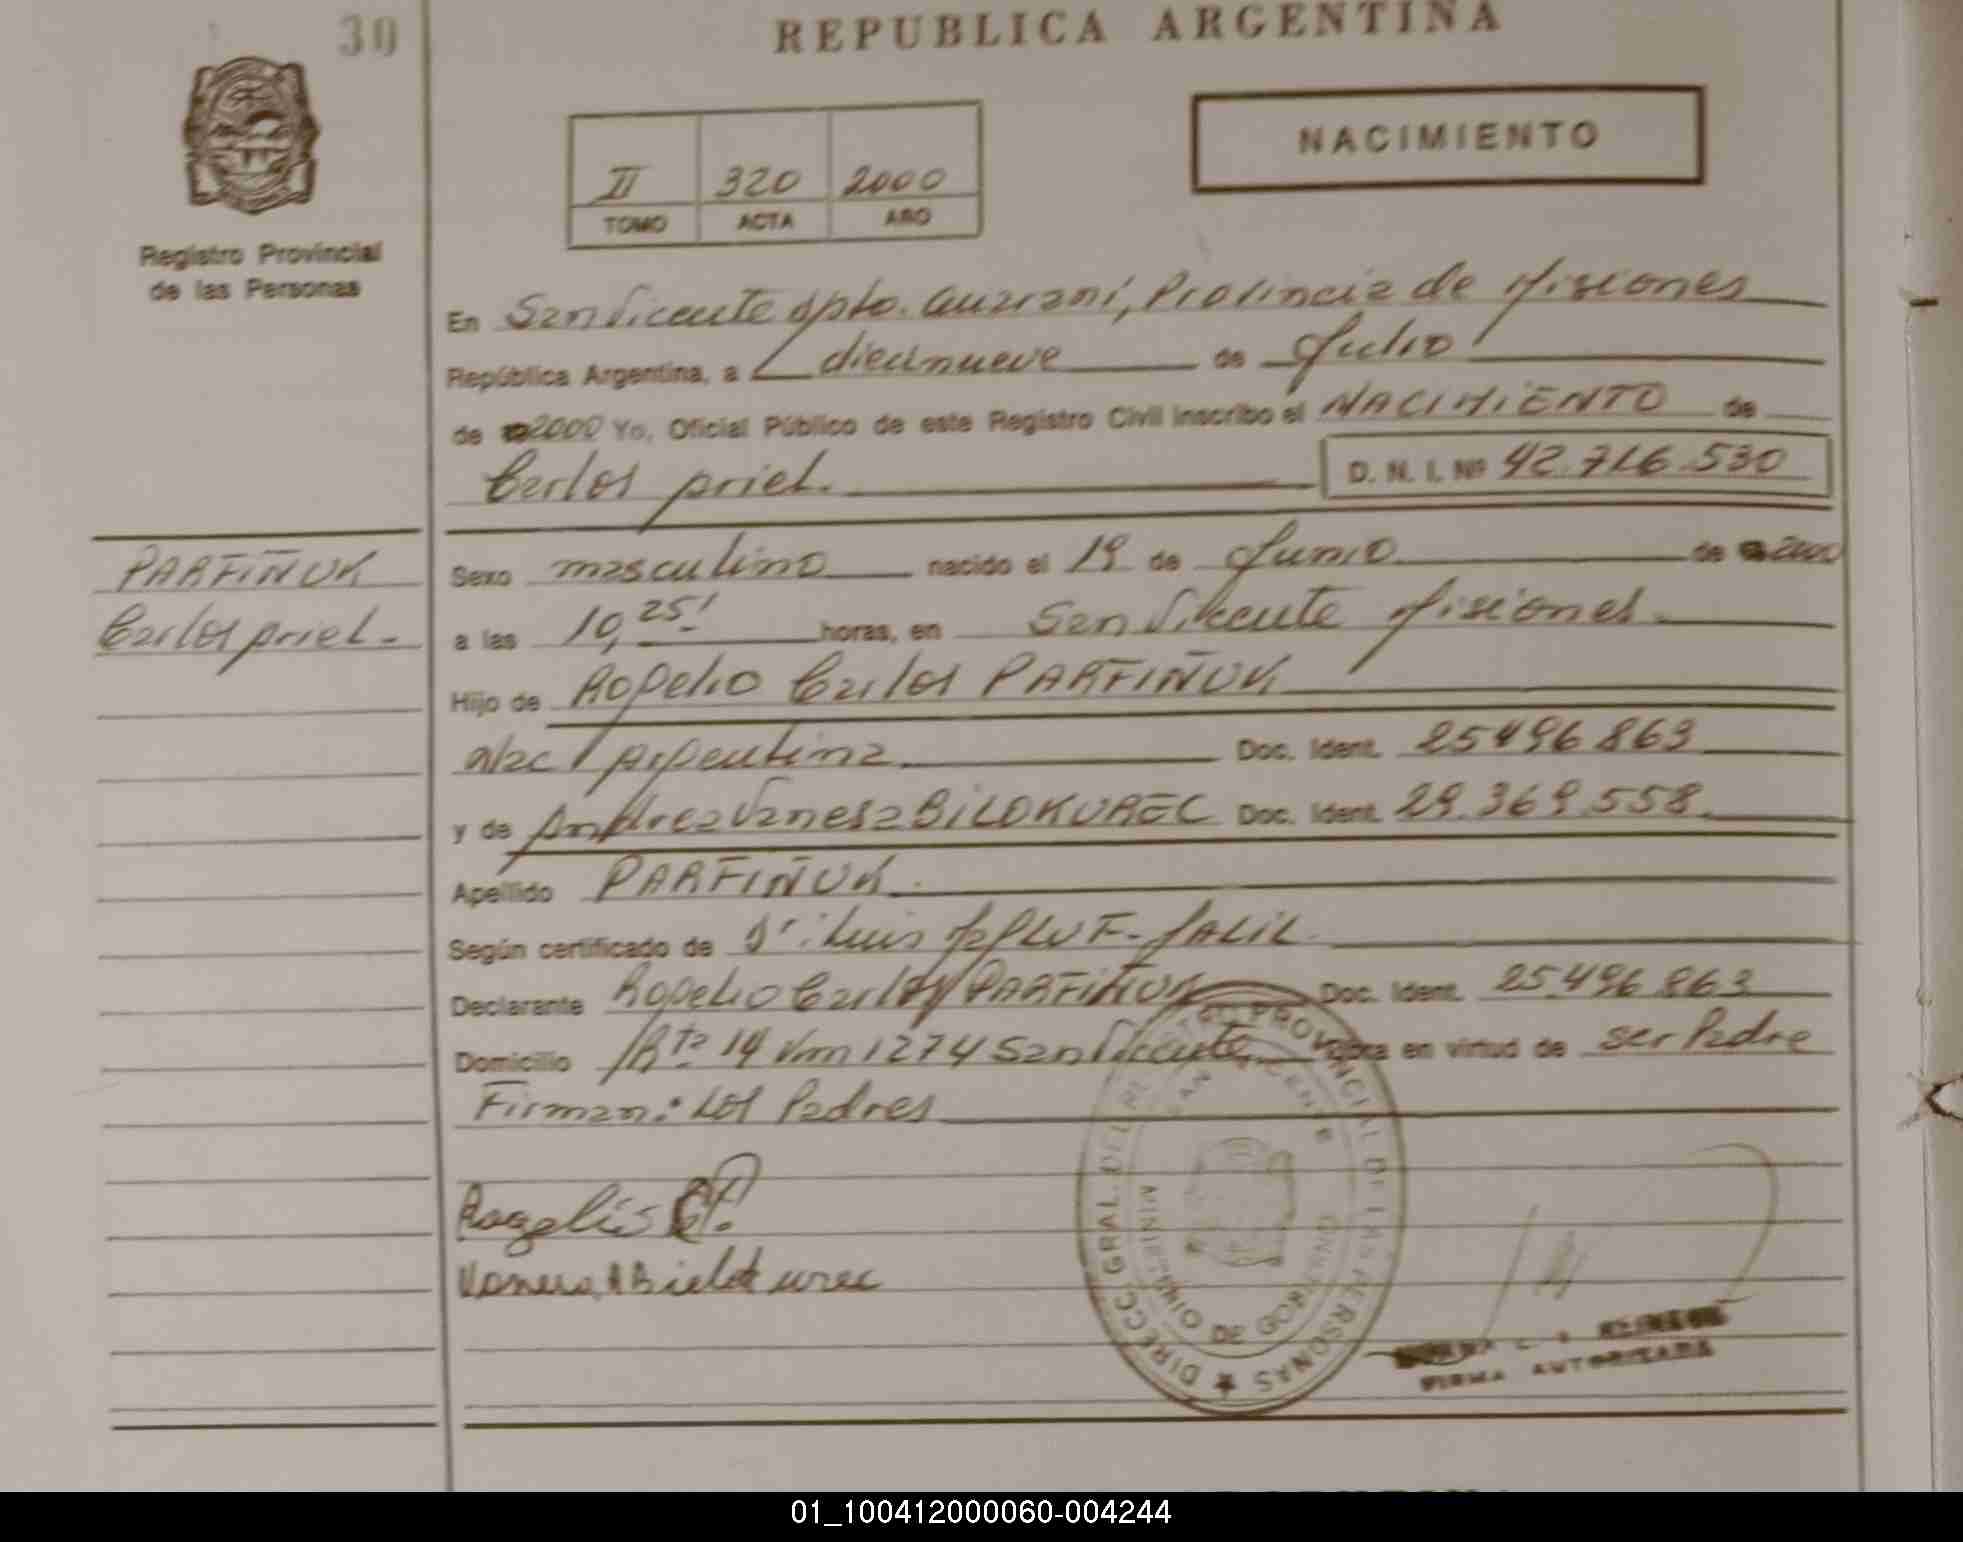 30
REPUBLICA ARGENTINA
NACIMIENTO
II 320 2000
TOMO ACTA AÑO
Registro Provincial
de las Personas
En San Vicente Dpto. Guaraní, Provincia de Misiones
República Argentina, a diecinueve de Julio
de 2000 Yo, Oficial Público de este Registro Civil inscribo el NACIMIENTO de
Carlos Ariel. D. N. I. Nº 42.716.530
PARFIÑUK
Carlos Ariel.-
Sexo masculino nacido el 19 de Junio de 2000
a las 10,25' horas, en San Vicente Misiones.
Hijo de Rogelio Carlos PARFIÑUK
Nac Argentina Doc. Ident. 25496863
y de Andrea Vanesa BiLOKUREC Doc. Ident. 29.369.558.
Apellido PARFIÑUK.
Según certificado de Dr: Luis JALIL
Declarante Rogelio Carlos PARFIÑUK Doc. Ident. 25.496.863
Domicilio Rta 14 Km 1274 San Vicente Obra en virtud de ser Padre
Firman: Los Padres
Rogelio C.P.
Vanesa A Bielokurec
DIRECC. GRAL. DEL REGISTRO PROVINCIAL DE LAS PERSONAS
SAN VICENTE
MINISTERIO DE GOBIERNO
FIRMA AUTORIZADA
01_100412000060-004244